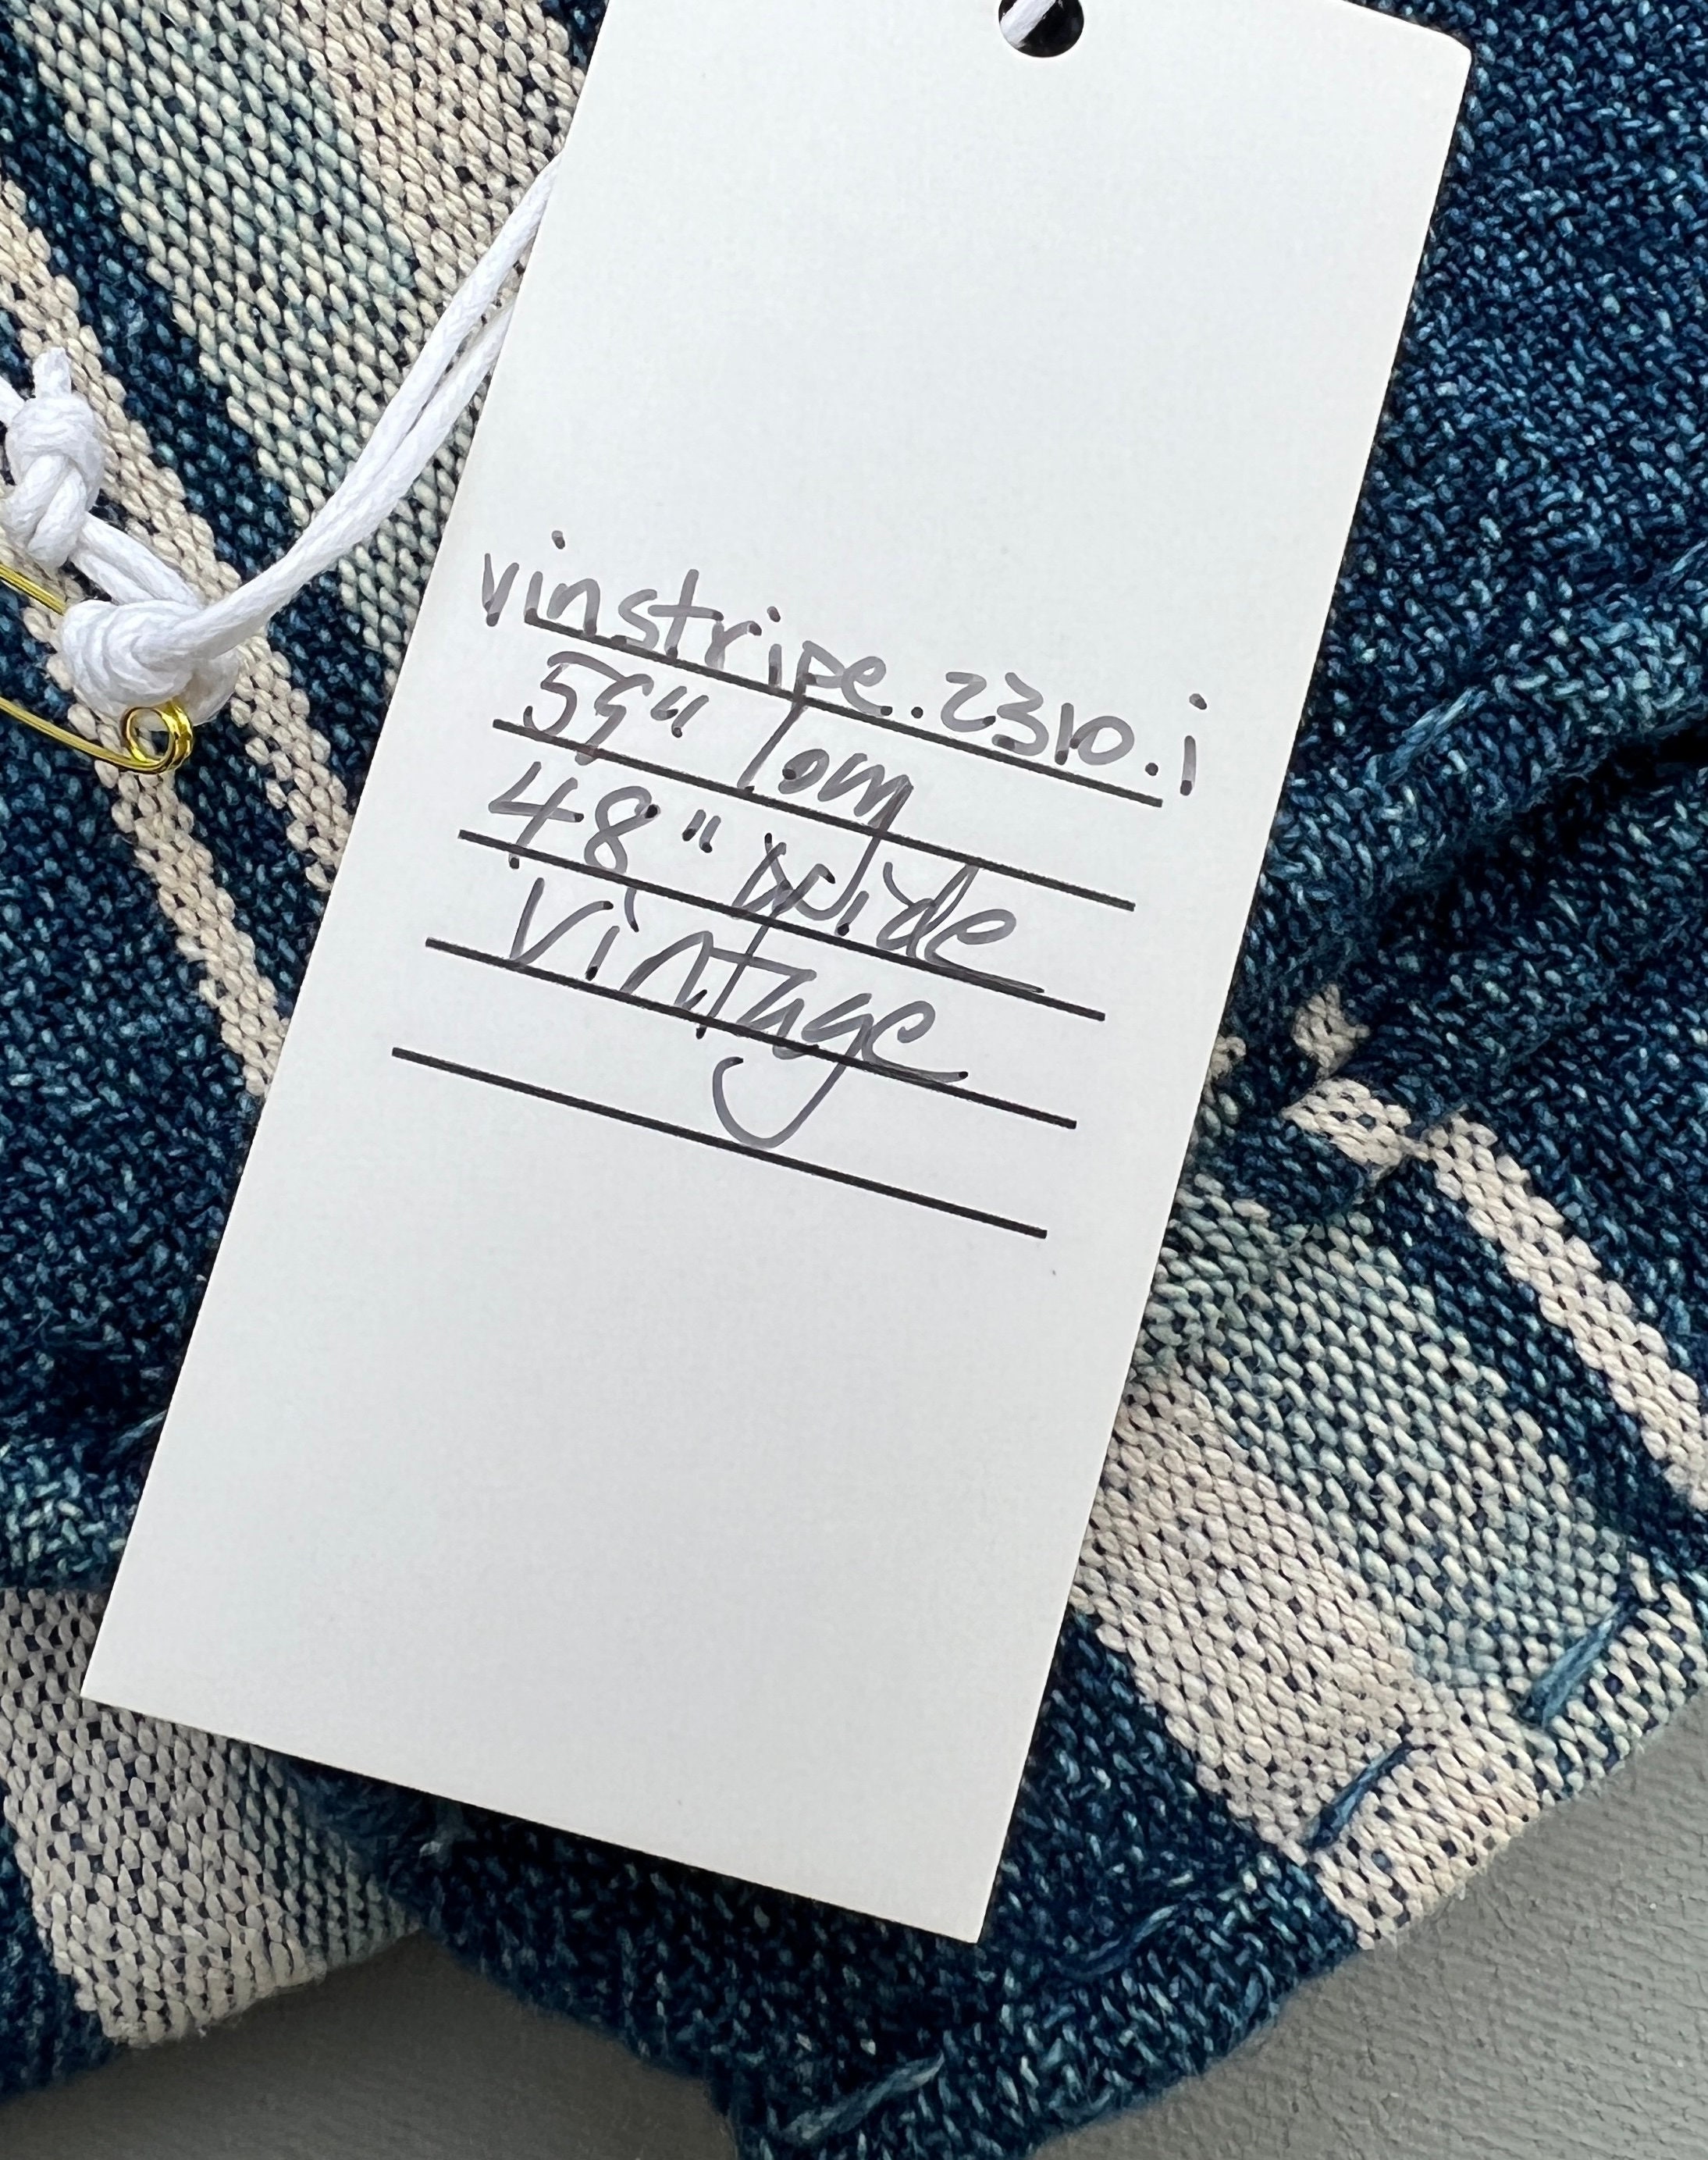 vinstripe.2310.i
59" long
48" wide
vintage